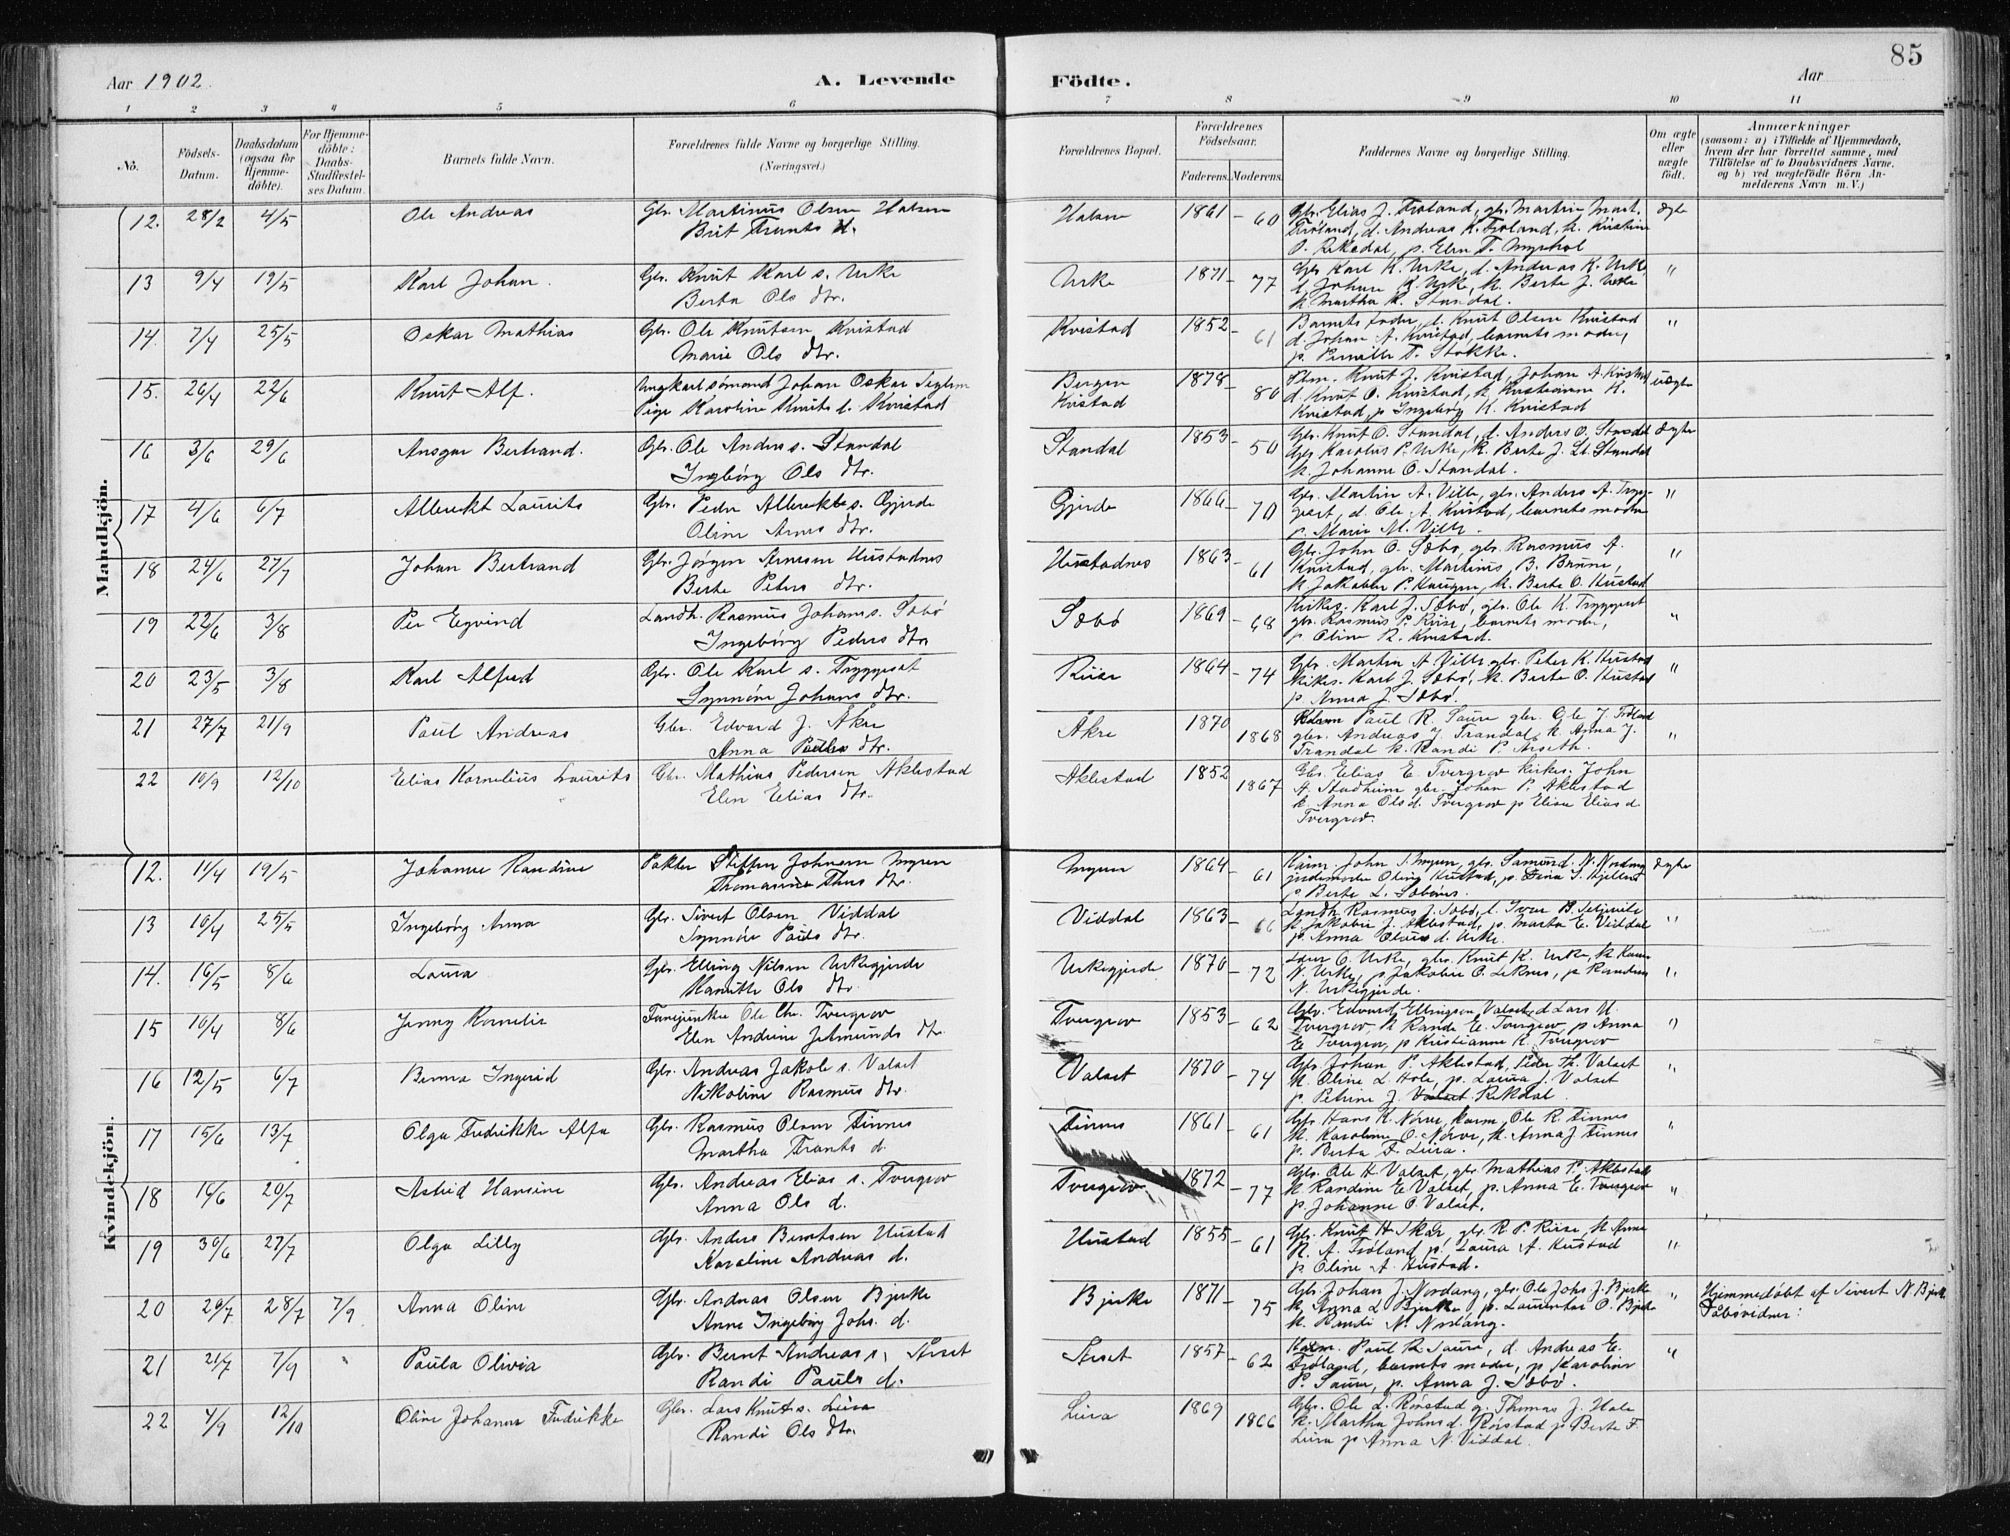 85
Aar 1902.
A. Levende Födte.
Aar
1 2 3 4 5 6 7 8 9 10 11
No.
Födsels-Datum.
Daabsdatum (ogsaa for Hjemme-döbte).
For Hjemme-döbte: Daabs-Stadfæstel-ses Datum.
Barnets fulde Navn.
Forældrenes fulde Navne og borgerlige Stilling.
(Næringsvei.)
Forældrenes Bopæl.
Forældrenes Födselsaar.
Faderens. Moderens.
Faddernes Navne og borgerlige Stilling.
Om ægte eller uægte födt.
Anmærkninger
(saasom: a) i Tilfælde af Hjemmedaab,
hvem der har forrettet samme, med
Tilföielse af to Daabsvidners Navne.
og b) ved uægtefödte Börn An-
melderens Navn m. V.)
Mandkjön.
12. 28/2 4/5 Ole Andreas Gbr. Martinus Olsen Halsen Halsen 1861 – 60 Gbr. Elias J. Trøland, gbr. Martin Mart. Ægte
Brit Trants d. Trøland, d. Andreas K. Trøland, k. Kristine
O. Rekedal, p. Elen T. Myrhol
13 9/4 19/5 Karl Johan. Gbr. Knut Karl s. Urke Urke 1871 – 77 Gbr Karl K. Urke, d. Andreas K. Urke "
Berta Ols dtr. d. Johan K. Urke, k. Berte J. Urke
k. Martha K. Standal.
14. 7/4 25/5 Oskar Mathias Gbr. Ole Knutsen Kvistad Kvistad 1852 – 61 Barnets fader, d. Knut Olsen Kvistad "
Marie Ols dtr. d. Johan A. Kvistad, barnets moder,
p. Pernille T. Stokke.
15. 26/4 22/6 Knut Alf. Ungkarl sömand Johan Oskar Bergen 1878 – 80 Knut J. Kvistad, Johan A. Kvistad uægte
Pige Karoline Knuts d. Kvistad Kvistad d. Knut O. Kvistad, k. Kristianne K.
Kvistad, p Ingebörg K. Kvistad
16 3/6 29/6 Ansgar Bertrand. Gbr. Ole Anders s. Standal Standal 1853 – 50 Gbr. Knut O. Standal, d. Anders O. Standal Ægte
Ingbörg Ols dtr. Gbr Karolus P. Urke, k. Berte J. Standal
k. Johanne O. Standal.
17 4/6 6/7 Albrekt Laurits Gbr. Peder Albrektss. Gjerde Gjerde 1866 – 70 Gbr. Martin A. Villa, gbr. Anders A. Trygg- "
Oline Arns dtr. geset, d. Ole A. Kvistad, barnets moder
p. Marie M. Villa.
18 24/6 27/7 Johan Bertrand Gbr. Jörgen Arnesen Hustadnes Hustadnes 1863 – 61 Gbr. John O. Sæbø, gbr. Rasmus A. "
Berte Peters dtr. Kvistad, gbr. Martinus B.
k Jakobine P. k. Berte O. Hustad
19 22/6 3/8 Per Eyvind Landh. Rasmus Johans. Sæbö Sæbö 1869 – 68 Kirkes. Karl J. Sæbø, gbr. Ole K. Tryggeset
Ingebörg Peders dtr. gbr. Rasmus P. Riise, barnets moder, "
p. Oline R. Kvistad.
20 23/5 3/8 Karl Alfred Gbr. Ole Karl s. Tryggeset Riise 1864 – 74 Gbr. Martin A Villa, gbr. Peter K. Hustad "
Synnöve Johans dtr. Kirkes. Karl J. Sæbö, k. Berte O. Hustad
p. Anna J. Sæbö.
21 27/7 21/9 Paul Andreas Gbr. Edvard J. Åkre Åkre 1870 1868 Paul R. Saure gbr. Ole J. Trøland
Anna Pauls dtr. gbr. Andreas J. Trandal, k. Anna J. "
Trandal k. Randi P. Årseth.
22 10/9 12/10 Elias Kornelius Laurits Gbr. Mathias Pedersen Aklestad Aklestad 1852 1867 Gbr. Elias E. Tvergrov kirkes. John
Elen Elias dtr. A. Stadheim gbr. Johan P. Aklestad
k. Anna Olsd. Tvergrov p Elise Elias d
Tvergrov.
Kvindekjön.
12. 11/4 19/5 Johanne Randine Pakter Steffen Johnsen Myren Myren 1864 – 61 John S. Myren, gbr. Samund. N. Nordang Ægte
Thomasine Thus dtr. jordemoder Oline Hustad, p.
p Berte L. Sæbönes.
13 10/4 25/5 Ingebörg Anna Gbr. Sivert Olsen Viddal Viddal 1863 – 66 Landh. Rasmus J. Sæbö, d. Iver B. "
Synnöve Pauls dtr. k. Jakobine J. Aklestad, p. Marta E. Viddal
p. Anna d. Urke.
14. 16/5 8/6 Laura Gbr. Elling Nilsen Urkegjerde Urkegjerde 1870 – 72 O. Urke, gbr. Knut K. Urke, k. "
Ols dtr. N. Urke, p Jakobine O. Leknes, p Randine
N. Urkegjerde.
15 10/4 8/6 Jenny Kornelie Ole Chr. Tvergrov Tvergrov 1853 – 62 Gbr. Edvard Ellingsen Valset, d Lars U. "
Elen Andrine Jetmunds dtr. Tvergrov, k Randi E. Tvergrov, p Anna
E. Tvergrov, p Kristianne K. Tvergrov
16 12/5 6/7 Benna Ingerid Gbr. Andreas Jakob s. Valset Valset 1870 – 74 Gbr Johan P. Aklestad, Peder Th. Valset "
Nikoline Rasmus dtr. k. Oline L. Hole, p. Laura J. Valset
p. Petrine J. Rekdal.
17 15/6 13/7 Olga Fredrikke Alfa Gbr. Rasmus Olsen Finnes Finnes 1861 – 61 Gbr Hans K. Nörve, Ole R. Finnes "
Martha Trants d. k. Karoline O. Nörve, k. Anna J Finnes
p. Berta F. Leira.
18 16/6 20/7 Astrid Hansine Gbr. Andreas Elias s. Tvergrov Tvergrov 1872 – 77 Gbr. Ole H. Valset, gbr Mathias P. Aklestad
Anna Ols d. k. Randine E Valset, p. Anna E. Tvergrov "
p. Johanne O Valset.
19 30/6 27/7 Olga Lilly Gbr. Anders Berntsen Hustad Hustad 1855 – 61 Gbr. Knut H Skar, gbr. R. P. Riise, k Anne
Karoline Andreas d. R. A. Trøland p. Laura A. Hustad "
p Oline A. Hustad.
20 20/7 28/7 7/9 Anna Oline Gbr. Andreas Olsen Bjerke Bjerke 1871 – 75 Gbr. Johan J. Nordang, gbr. Ole Johs J. Bjerke " Hjemmedöbt af Sivert N Bjerke
Anne Ingebörg Johs. d. k. Anna L Bjerke, p. Laurentse O. Bjerke Dåbsvidner:
k. Randi N. Nordang.
21 21/7 7/9 Paula Olivia Gbr. Bernt Andreas s. Årset Årset 1857 – 62 Paul R Saure, d. Andreas E. "
Randi Pauls d. Trøland, barnets moder, p Karoline
P. Saure, p. Anna J. Sæbø.
22 4/9 12/10 Oline Johanne Fredrikke Gbr. Lars Knuts. Leira Leira 1869 1866 Gbr. Ole L. Rørstad g. Thomas J. Hole
Randi Ols dtr. k. Martha Johnsd. Rørstad p Berte F.
Leira p Anna N. Viddal.